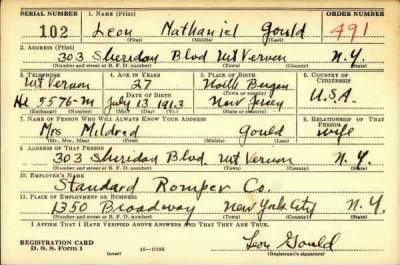 SERIAL NUMBER 1. NAME (Print) ORDER NUMBER
102 Leon Nathaniel Gould 491
(First) (Middle) (Last)
2. ADDRESS (Print)
303 Sheridan Blvd Mt Vernon N.Y.
(Number and street or R. F. D. number) (Town) (County) (State)
3. TELEPHONE 4. AGE IN YEARS 5. PLACE OF BIRTH 6. COUNTRY OF CITIZENSHIP
Mt Vernon 27 North Bergen
DATE OF BIRTH
5576-M July 13 1913 New Jersey U.S.A.
(Exchange) (Number) (Mo.) (Day) (Yr.) (State or country)
7. NAME OF PERSON WHO WILL ALWAYS KNOW YOUR ADDRESS 8. RELATIONSHIP OF THAT PERSON
Mrs Mildred Gould wife
(Mr., Mrs., Miss) (First) (Middle) (Last)
9. ADDRESS OF THAT PERSON
303 Sheridan Blvd. Mt Vernon N.Y.
(Number and street or R. F. D. number) (Town) (County) (State)
10. EMPLOYER'S NAME
Standard Romper Co.
11. PLACE OF EMPLOYMENT OR BUSINESS
1350 Broadway New York City N.Y.
(Number and street or R. F. D. number) (Town) (County) (State)
I AFFIRM THAT I HAVE VERIFIED ABOVE ANSWERS AND THAT THEY ARE TRUE.
REGISTRATION CARD Leon Gould
D. S. S. Form 1 (over) (Registrant's signature)